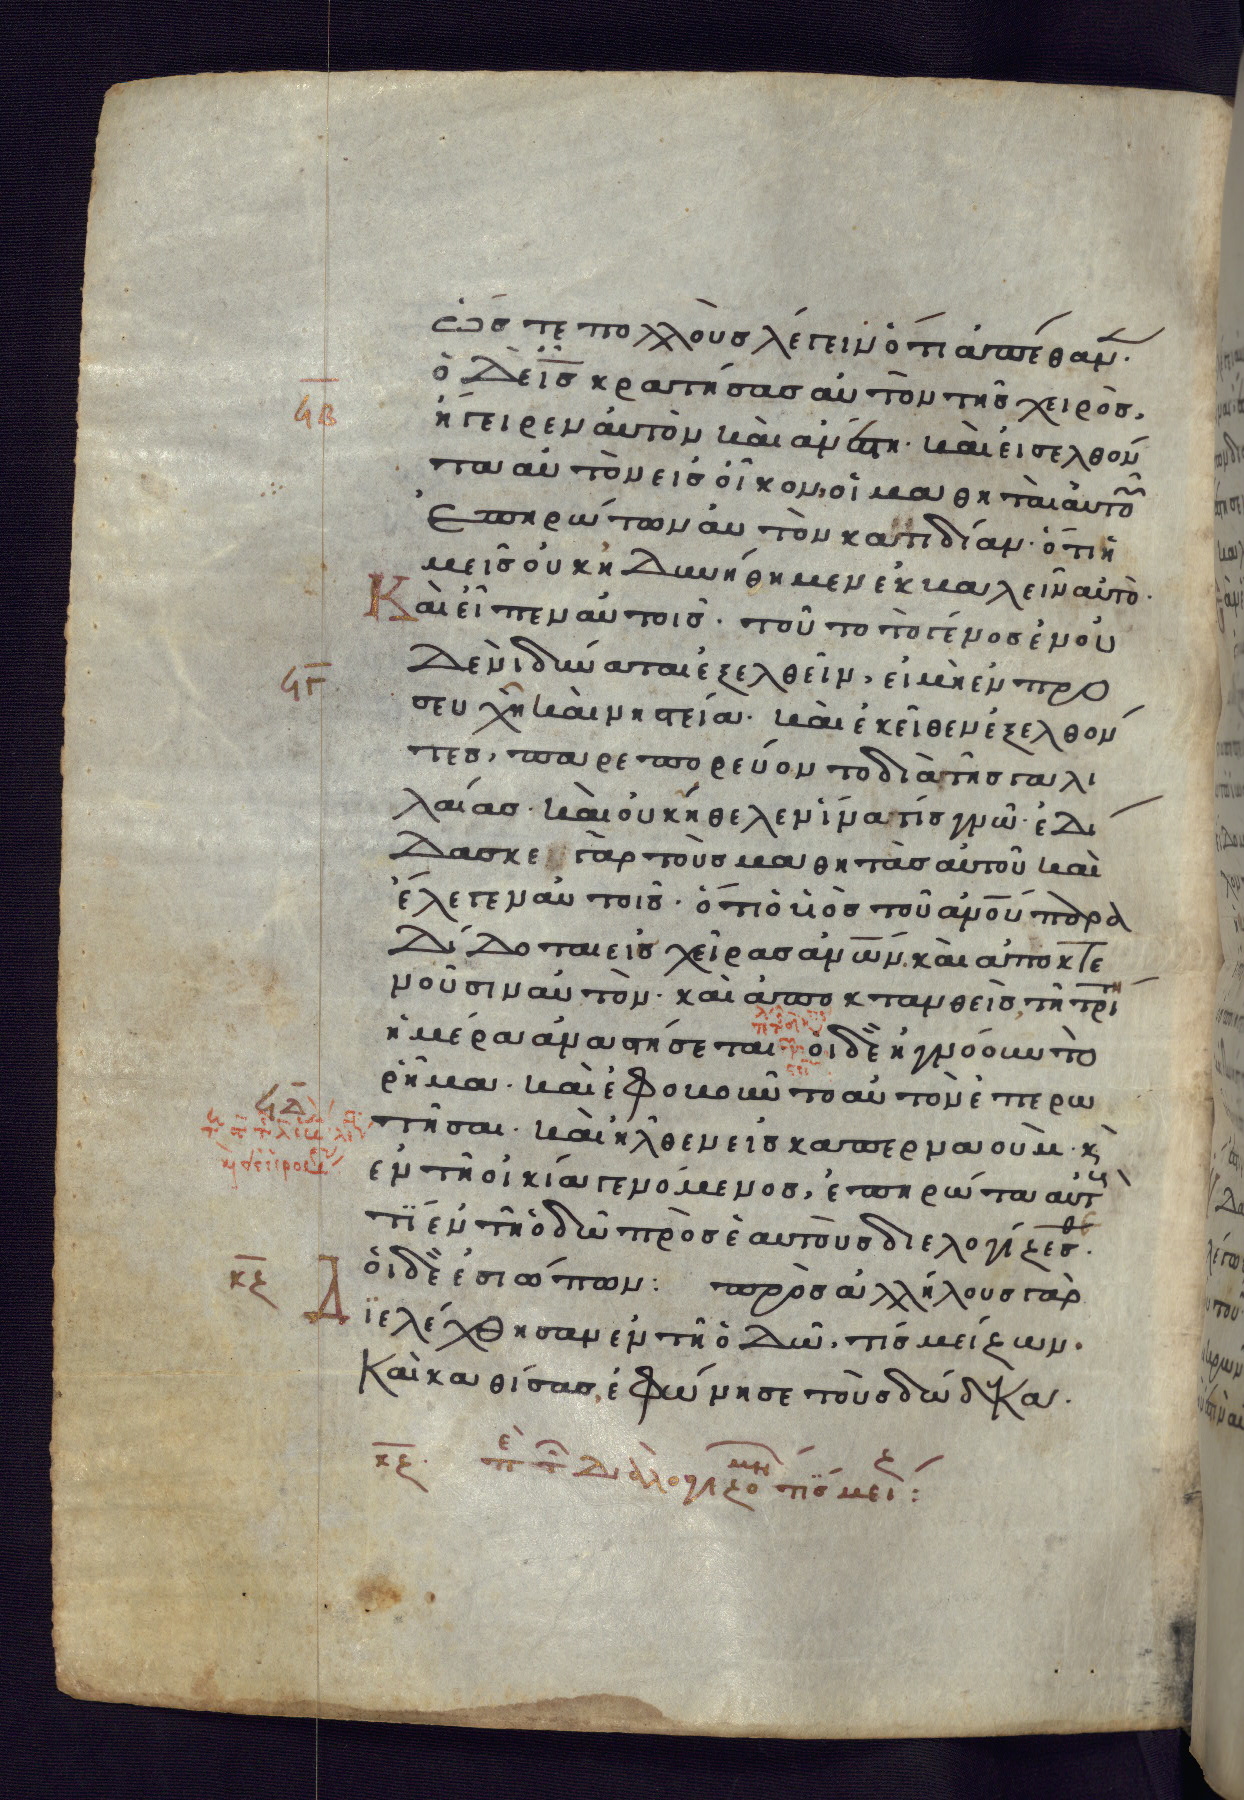 ὥστε πολλοὺς λέγειν ὅτι ἀπέθαν·
ϟβ
ὁ δὲ ι̅ς̅ κρατήσας αὐτὸν τῆς χειρὸς,
ἤγειρεν αὐτὸν καὶ ἀνέστη· καὶ εἰσελθόν
τα αὐτὸν εἰς οἶκον, οἱ μαθηταὶ αὐτοῦ
ἐπηρώτων αὐτὸν κατιδίαν· ὅτι ἡ
μεῖς οὐκ ἠδυνήθημεν ἐκβαλεῖν αὐτὸ·
Καὶ εἶπεν αὐτοῖς· τοῦτο τὸ γένος ἐν οὐ
ϟγ
δενὶ δύναται ἐξελθεῖν, εἰ μὴ ἐν προ
σευχῆ καὶ νηστεία· καὶ ἐκεῖθεν ἐξελθόν
τες, παρεπορεύοντο διὰ τῆς γαλι
λαίας· καὶ οὐκ ἤθελεν ἵνα τίς γνῶ· ἐδί
δασκε γὰρ τοὺς μαθητὰς αὐτοῦ καὶ
ἔλεγεν αὐτοῖς· ὅτι ὁ υἱὸς τοῦ ἀνου παρα
δίδοται εἰς χεῖρας ἀνων, καὶ ἀποκτε
νοῦσιν αὐτὸν· καὶ ἀποκτανθεὶς, τῆ τρί
ἡμέρα ἀναστήσεται· οἱ δὲ ἠγνόουν τὸ
ῥῆμα· καὶ ἐφοβοῦντο αὐτὸν ἐπερω
ϟδ
τῆσαι· καὶ ἦλθεν εἰς καπερναούμ· κ
ἐν τῆ οἰκία γενόμενος, ἐπηρώτα αὐτ
τί ἐν τῆ ὁδῶ πρὸς ἑαυτοὺς διελογίζεσθ·
κζ
οἱ δὲ ἐσιώπων: πρὸς ἀλλήλους γὰρ
Διελέχθησαν ἐν τῆ ὁδῶ, τίς μείζων·
Καὶ καθίσας, ἐφώνησε τοὺς δώδεκα·
κζ· πε τ διαλογιζομην τίς μείζ: